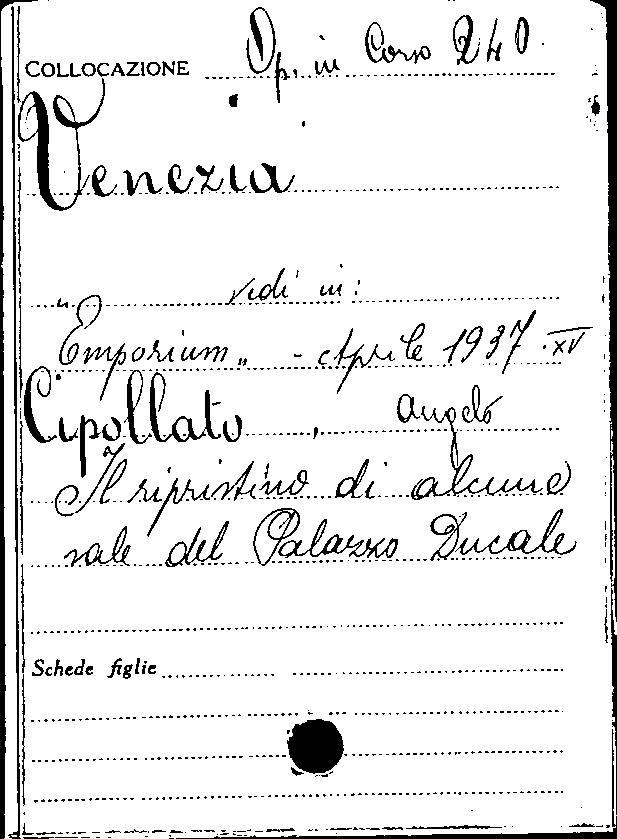 COLLOCAZIONE Op. in Corso 240
Venezia
vedi in:
"Emporium" - Aprile 1937 . XV
Cipollato , Angelo
Il ripristino di alcune
sale del Palazzo Ducale
Schede figlie